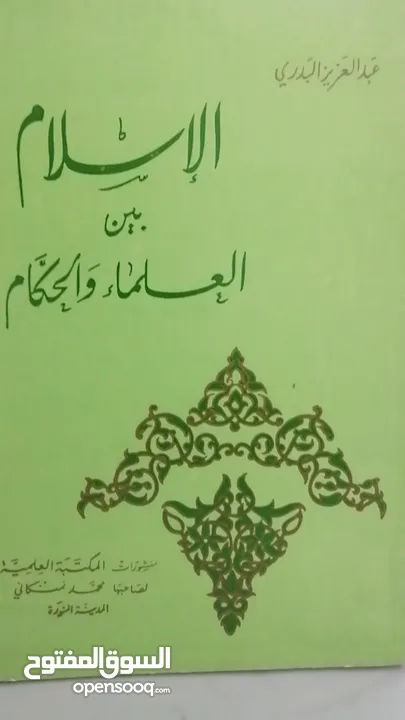 عبد العزيز البدري
الإسلام
بين
العلماء والحكام
منشورات المكتبة العلمية
لصاحبها محمد نمنكاني
المدينة المنورة
السوق المفتوح
opensooq.com